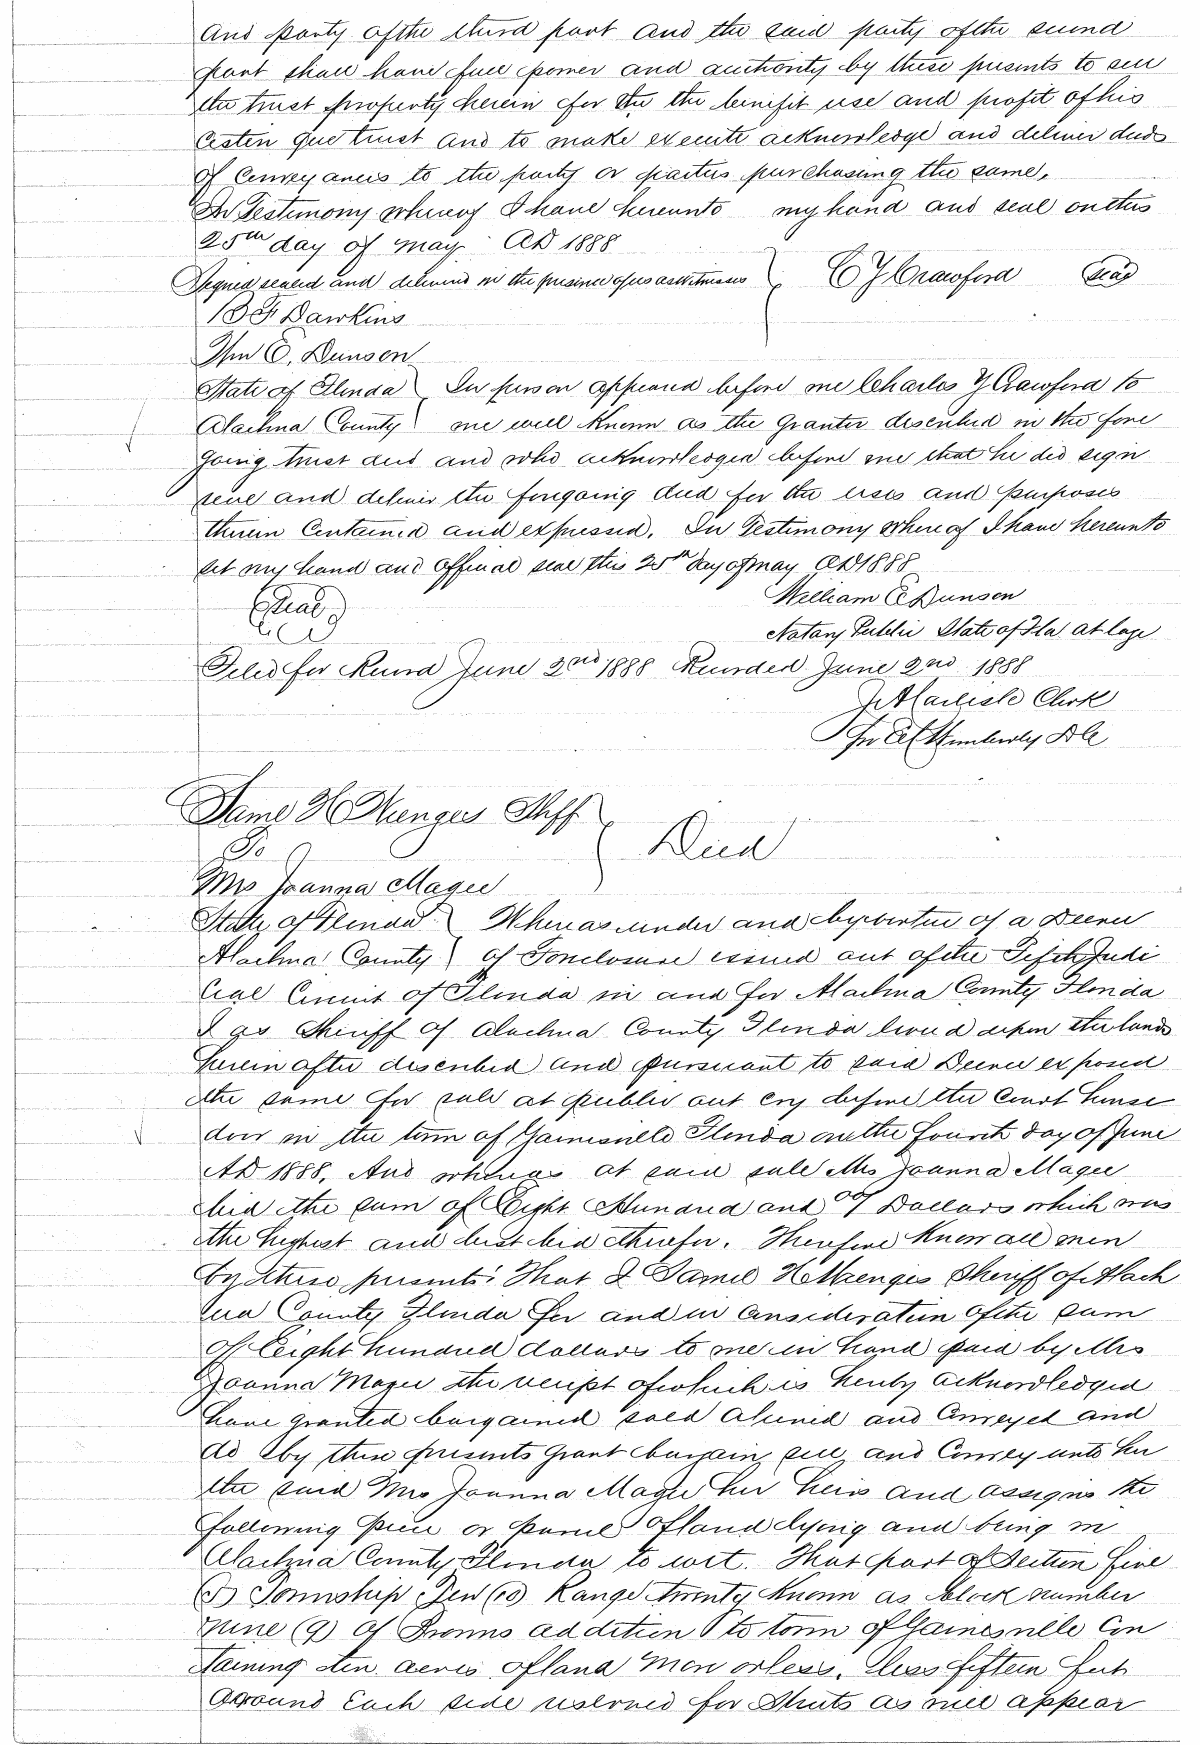 and party of the third part and the said party of the second
part shall have full power and authority by these presents to sell
the trust property herein for the the benifit use and profit of his
Cesten que trust and to make execute acknowledge and deliver deeds
of Conveyances to the party or parties purchasing the same,
In Testimony whereof I have hereunto my hand and seal on this
25th day of May AD 1888
Signed sealed and delivered in the presence of us as witnesses } C Y Crawford Seal
B F Dawkins
Wm E. Dunson
State of Florida } In person appeared before me Charles Y Crawford to
Alachua County } me well known as the Grantor described in the fore
going trust deed and who acknowledged before me that he did sign
seal and deliver the foregoing deed for the uses and purposes
therein Contained and expressed. In Testimony whereof I have hereunto
set my hand and official seal this 25th day of May AD 1888
Seal William E Dunson
Notary Public State of Fla at large
Filed for Record June 2nd 1888 Recorded June 2nd 1888
J A Carlisle Clerk
Per Wimberly D C
Saml H Wienges Shff
To } Deed
Mrs Joanna Magee
State of Florida } Whereas under and by virtue of a Decree
Alachua County } of Foreclosure issued out of the Fifth Judi
cial Circuit of Florida in and for Alachua County Florida
I as Sheriff of Alachua County Florida levied upon the lands
herein after described and pursuant to said Decree exposed
the same for sale at public out cry before the Court house
door in the town of Gainesville Florida on the fourth day of June
AD 1888. And whereas at said sale Mrs Joanna Magee
bid the sum of Eight Hundred and 00/ Dollars which was
the highest and best bid therefor. Therefore Know all men
by these presents: That I Saml H Wienges Sheriff of Alach
ua County Florida for and in Consideration of the sum
of Eight hundred dollars to me in hand paid by Mrs
Joanna Magee the receipt of which is hereby acknowledged
have granted bargained sold aliened and Conveyed and
do by these presents Grant bargain sell and Convey unto her
the said Mrs Joanna Magee her heirs and assigns the
following piece or parcel of land lying and being in
Alachua County Florida to wit. That part of Section five
(5) Township Ten (10) Range twenty known as block number
nine (9) of Browns addition to town of Gainesville Con
taining ten acres of land more or less, less fifteen feet
around Each side reserved for Streets as will appear